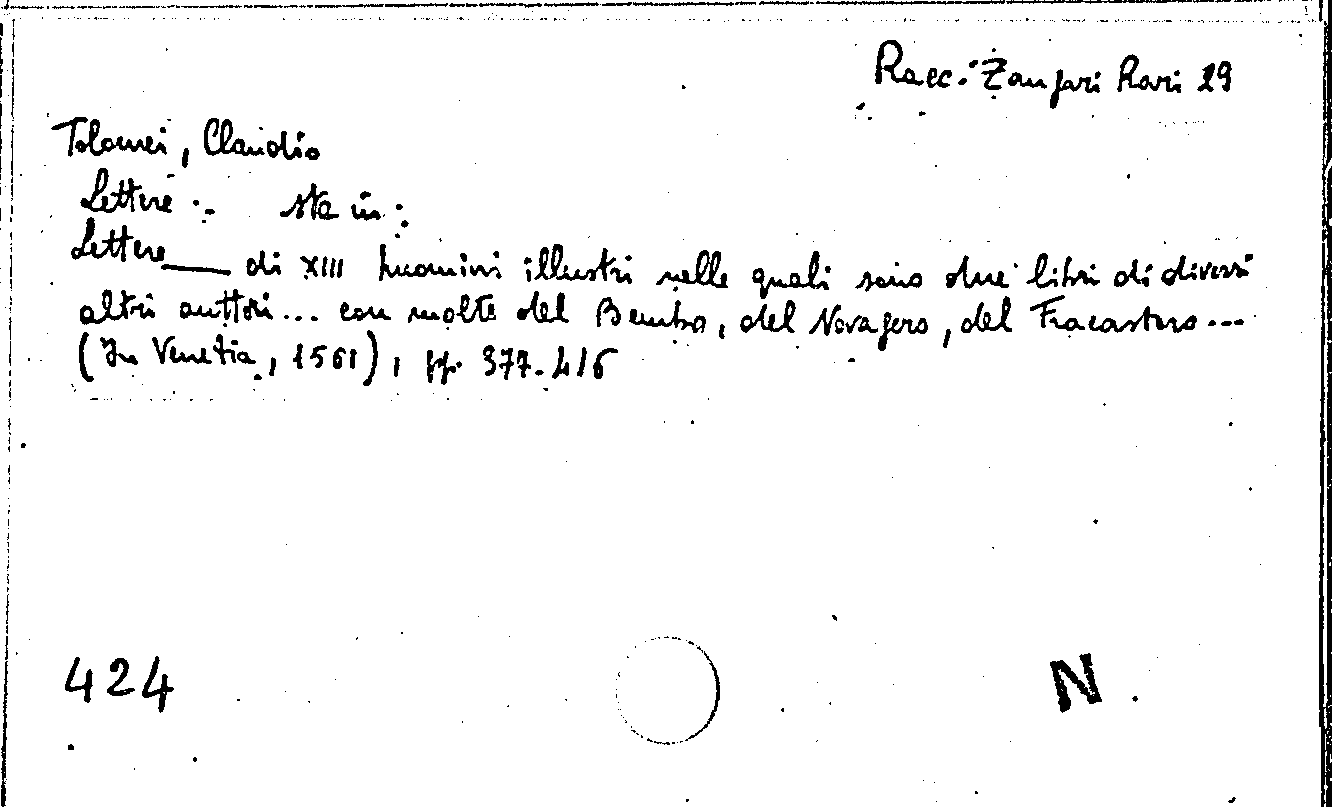 Racc. Zanfari Rari 29
Tolomei, Claudio
Lettere. sta in:
Lettere di XIII huomini illustri nelle quali sono due libri di diversi
altri auttori... con molte del Bembo, del Navagero, del Fracastoro...
(In Venetia, 1561), pp. 377-416
424
N